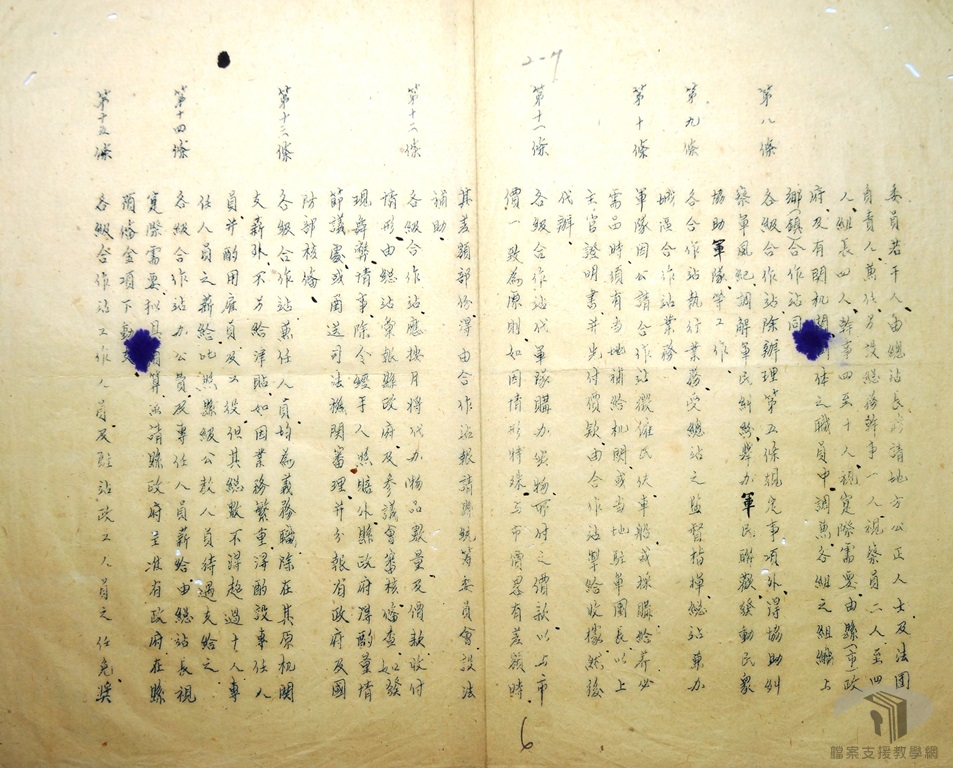 2-7
委員若干人由總站長商請地方公正人士及法團
負責人兼任另設總務幹事一人視察員二人至四
人組長四人幹事四至十人視實際需要由縣(市)政
府及有關机關團体之職員中調兼各組之組織上
鄉(鎮)合作站同
第八條 各級合作站除辦理第五條規定事項外得協助糾
察軍風紀調解軍民糾紛舉办軍民聯歡發動民眾
協助軍隊等工作
第九條 各合作站執行業務受總站之監督指揮總站兼办
城區合作站業務
第十條 軍隊因公請合作站徵僱民伕車船或採購給養必
需品時須有當地補給机關或當地駐軍團長以上
主官證明書并先付價款由合作站掣給收據然後
代辦
第十一條 各級合作站代軍隊購办實物所付之價款以与市
價一致為原則如因情形特殊与市價畧有差額時
其差額部份得由合作站報請縣統籌委員會設法
補助
第十二條 各級合作站應按月將代办物品數量及價款收付
情形由總站彙報縣政府及參議會審核備查如發
現舞弊情事除令經手人照賠外縣政府得酌量情
節議處或函送司法機関審理并分報省政府及國
防部核備
第十三條 各級合作站兼任人員均為義務職除在其原机関
支薪外不另給津貼如因業務繁重得酌設專任人
員并酌用雇員及工役但其總數不得超過十人專
任人員之薪給比照縣級公教人員待遇支給之
第十四條 各級合作站办公費及專任人員薪給由總站長視
實際需要拟具預算函請縣政府呈准省政府在縣
預備金項下動支
第十五條 各級合作站工作人員及駐站政工人員之任免獎
6
檔案支援教學網